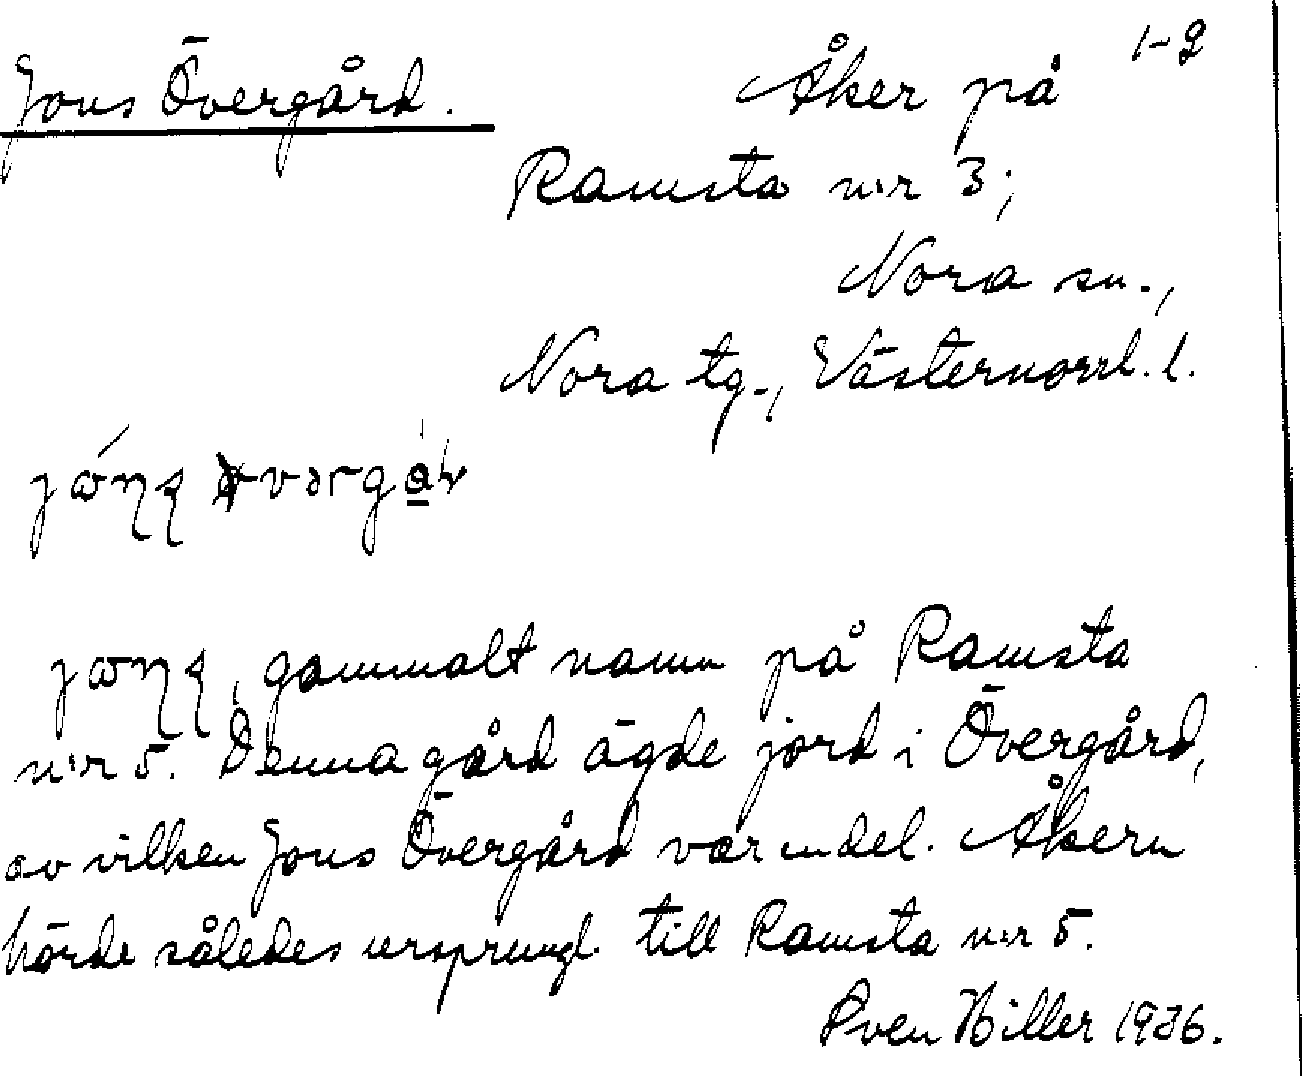 1-2
Jons Övergård. Åker på
Ramsta n:r 3;
Nora sn.,
Nora tg., Västernorrl. l.
gammalt namn på Ramsta
n:r 5. Denna gård ägde jord i Övergård,
av vilken Jons Övergård var en del. Åkern
hörde således ursprungl. till Ramsta n:r 5.
Sven Hiller 1936.